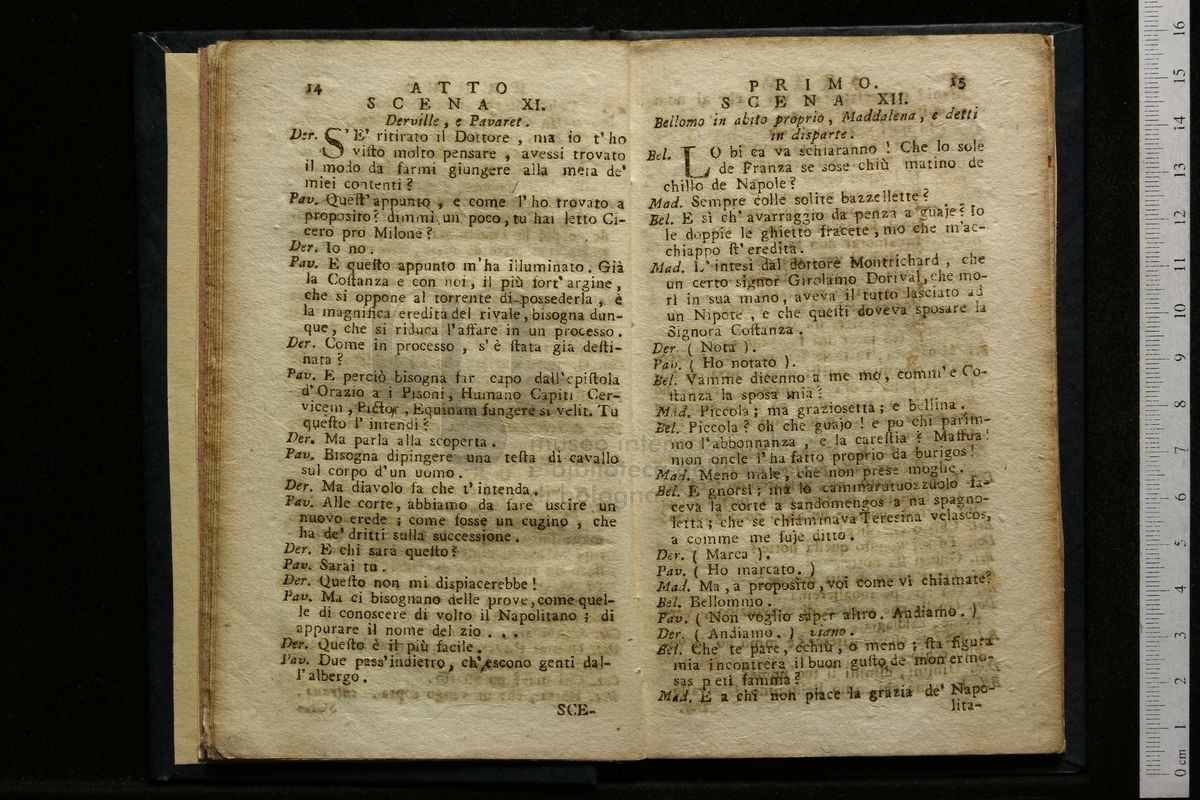 14 ATTO
SCENA XI.
Derville, e Pavaret.
Der. S'E' ritirato il Dottore, ma io t'ho
visto molto pensare, avessi trovato
il modo da farmi giungere alla meta de'
miei contenti?
Pav. Quest'appunto, e come l'ho trovato a
proposito? dimmi un poco, tu hai letto Ci-
cero pro Milone?
Der. Io no.
Pav. E questo appunto m'ha illuminato. Già
la Costanza e con noi, il più fort'argine,
che si oppone al torrente di possederla, è
la magnifica eredità del rivale, bisogna dun-
que, che si riduca l'affare in un processo.
Der. Come in processo, s'è stata già desti-
nata?
Pav. E perciò bisogna far capo dall'epistola
d'Orazio a i Pisoni, Humano Capiti Cer-
vicem, Pictor, Equinam fungere si velit. Tu
questo l'intendi?
Der. Ma parla alla scoperta.
Pav. Bisogna dipingere una testa di cavallo
sul corpo d'un uomo.
Der. Ma diavolo fa che t'intenda.
Pav. Alle corte, abbiamo da fare uscire un
nuovo erede; come fosse un cugino, che
ha de' dritti sulla successione.
Der. E chi sarà questo?
Pav. Sarai tu.
Der. Questo non mi dispiacerebbe!
Pav. Ma ci bisognano delle prove, come quel-
le di conoscere di volto il Napolitano; di
appurare il nome del zio...
Der. Questo è il più facile.
Pav. Due pass'indietro, ch'escono genti dal-
l'albergo.
SCE-
PRIMO. 15
SCENA XII.
Bellomo in abito proprio, Maddalena, e detti
in disparte.
Bel. LO bi ca va schiaranno! Che lo sole
de Franza se sose chiù matino de
chillo de Napole?
Mad. Sempre colle solite bazzellette?
Bel. E sì ch'avarraggio da penza a guaje? Io
le doppie le ghietto fracete, mo che m'ac-
chiappo st'eredita.
Mad. L'intesi dal dottore Montrichard, che
un certo signor Girolamo Dorival, che mo-
rì in sua mano, aveva il tutto lasciato ad
un Nipote, e che questi doveva sposare la
Signora Costanza.
Der ( Nota ).
Pav. ( Ho notato ).
Bel. Vamme dicenno a me mo, comm'e Co-
stanza la sposa mia?
Mad. Piccola; ma graziosetta; e bellina.
Bel. Piccola? oh che guajo! e po chi parim-
mo l'abbonnanza, e la carestia? Maffua!
mon oncle l'ha fatto proprio da burigos!
Mad. Meno male, che non prese moglie.
Bel. E gnorsì; ma lo cammaratuozzuolo fa-
ceva la corte a sandomengos a na spagno-
letta; che se chiammava Teresina velascos,
a comme me fuje ditto.
Der. ( Marca ).
Pav. ( Ho marcato. )
Mad. Ma, a proposito, voi come vi chiamate?
Bel. Bellommo.
Pav. ( Non voglio saper altro. Andiamo. )
Der. ( Andiamo. ) viano.
Bel. Che te pare, cchiù, o meno; sta figura
mia incontrerà il buon gusto de mon ermo-
sas peti famma?
Mad. E a chi non piace la grazia de' Napo-
lita-